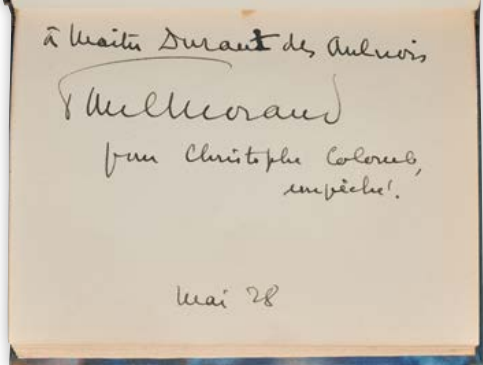 à Maître Durant des Aulnois
Paul Morand
pour Christophe Colomb,
empêché.
Mai 28